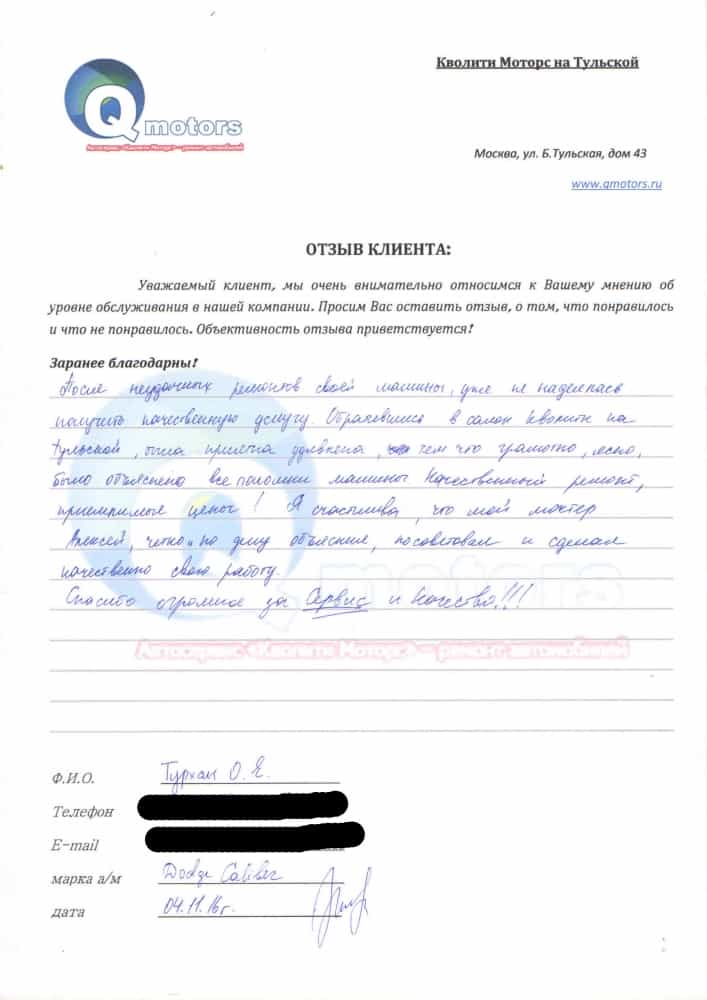 Кволити Моторс на Тульской
Q motors
Автосервис «Кволити Моторс» – ремонт автомобилей
Москва, ул. Б.Тульская, дом 43
www.qmotors.ru
ОТЗЫВ КЛИЕНТА:
Уважаемый клиент, мы очень внимательно относимся к Вашему мнению об
уровне обслуживания в нашей компании. Просим Вас оставить отзыв, о том, что понравилось
и что не понравилось. Объективность отзыва приветствуется!
Заранее благодарны!
После неудачных ремонтов своей машины, уже не надеялась
получить качественную услугу. Обратившись в салон Кволити на
Тульской, была приятна удивлена, тем что грамотно, ясно,
было объяснено все поломки машины. Качественный ремонт,
приемлимые цены! Я счастлива, что мой мастер
Алексей, четко и по делу объяснил, посоветовал и сделал
качественно свою работу.
Спасибо огромное за Сервис и Качество!!!
Q motors
Автосервис «Кволити Моторс» – ремонт автомобилей
Ф.И.О. О. Е.
Телефон
E-mail
марка а/м Dodge Caliber
дата 04.11.16г.